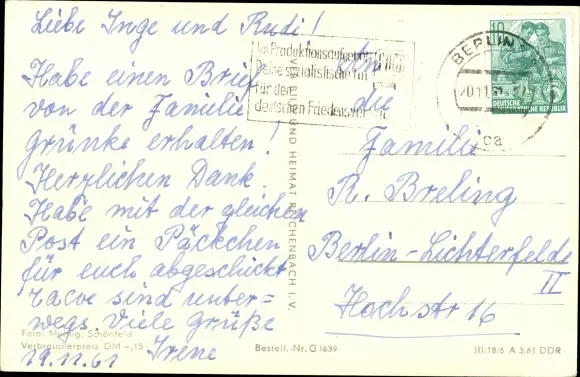 Liebe Inge und Rudi!
Habe einen Brief
von der Familie
Grünke erhalten!
Herzlichen Dank.
Habe mit der gleichen
Post ein Päckchen
für euch abgeschickt
sind unter=
wegs. Viele Grüße
19.11.61 Irene
Foto: Schönfeld
Verbraucherpreis DM -,15
Im Produktionsaufgebot
Deine sozialistische Tat
für den
deutschen Friedensvertrag
BERLIN
10
DEUTSCHE
DEMOKRATISCHE REPUBLIK
ca
BILD UND HEIMAT REICHENBACH I. V.
An
die
Familie
R. Breling
Berlin-Lichterfelde
II
Hochstr 16
Bestell.-Nr. G 1639
III/18/6 A 3.61 DDR